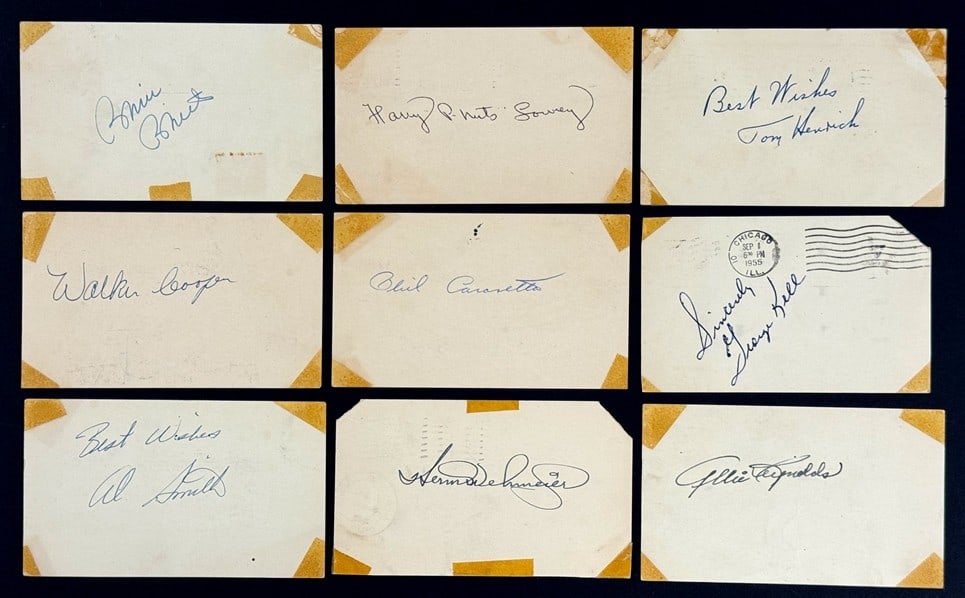 Harry P-nuts Lowrey
Best Wishes
Tom Henrich
Walker Cooper
Phil Cavarretta
CHICAGO
SEP 1
6 30 PM
1955
ILL.
10
Sincerely
George Kell
Best Wishes
Al Smith
Herm Wehmeier
Allie Reynolds